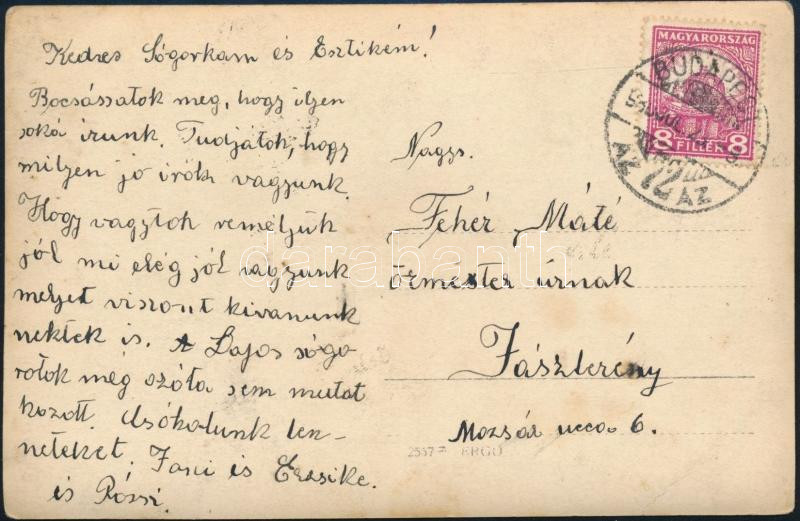 Kedves Sógorkám és Esztikém!
Bocsássatok meg, hogy ilyen
soká irunk. Tudjátok, hogy
milyen jó irók vagyunk.
Hogy vagytok reméljük
jól mi elég jól vagyunk
melyet viszont kivanunk
nektek is. A Lajos sógo
rotok még azóta sem mutat
kozott. Csókolunk ben-
neteket. Jani és Erzsike.
és Rózsi.
MAGYARORSZÁG
8 FILLÉR 8
BUDAPEST
AZ 72 AZ
Nagys.
Fehér Máté
őrmester úrnak
Jászterény
Mozsár ucca 6.
2557 ERGO
darabanth